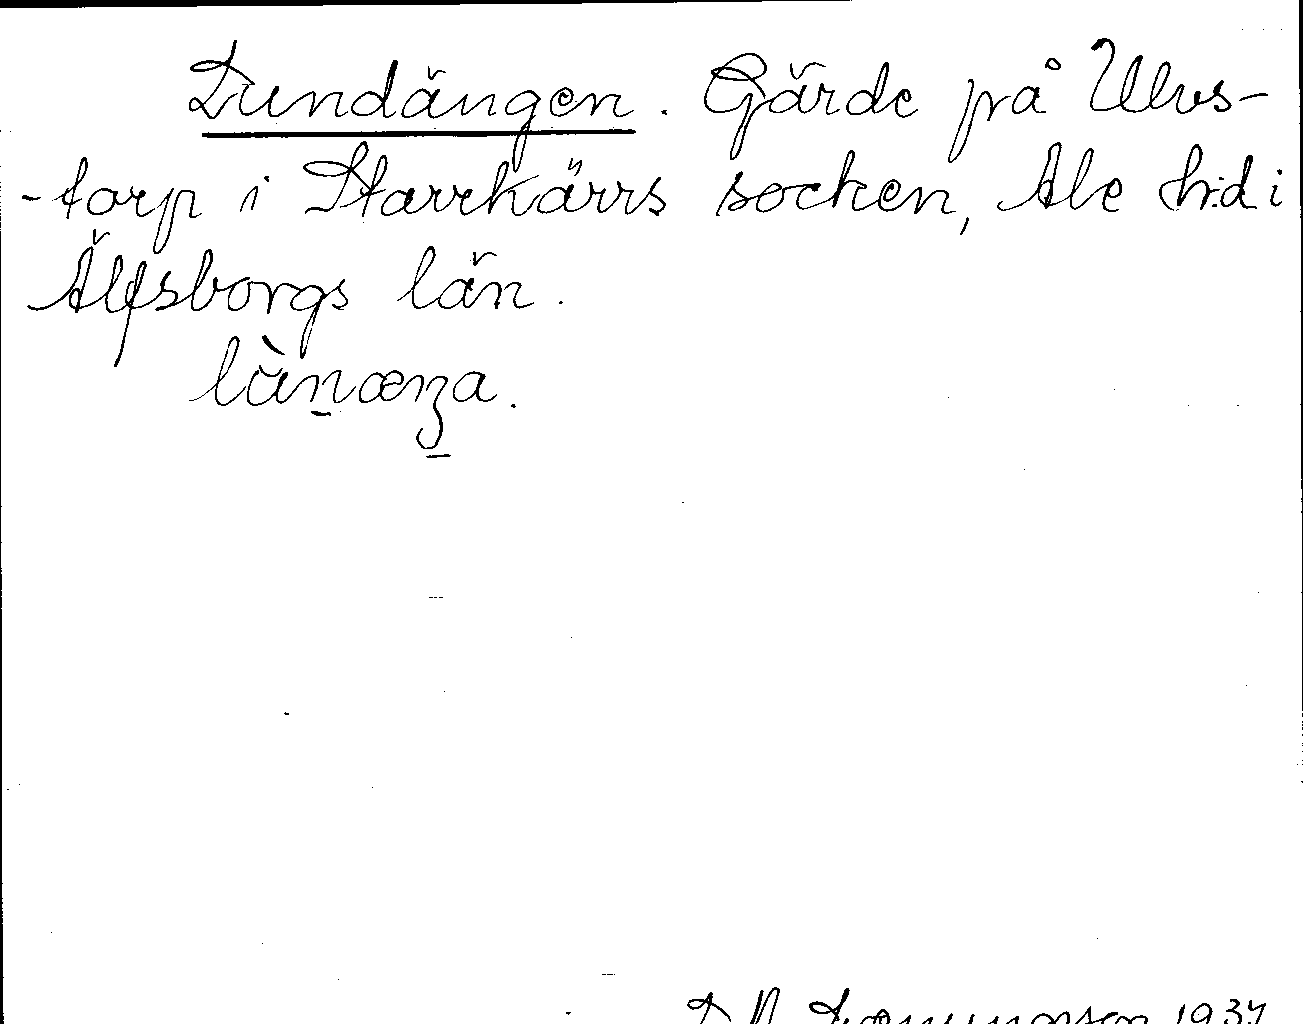 Lundängen. Gärde på Ulvs-
-torp i Starrkärrs socken, Ale h:d i
Älfsborgs län.
làn̠æŋa.
1937